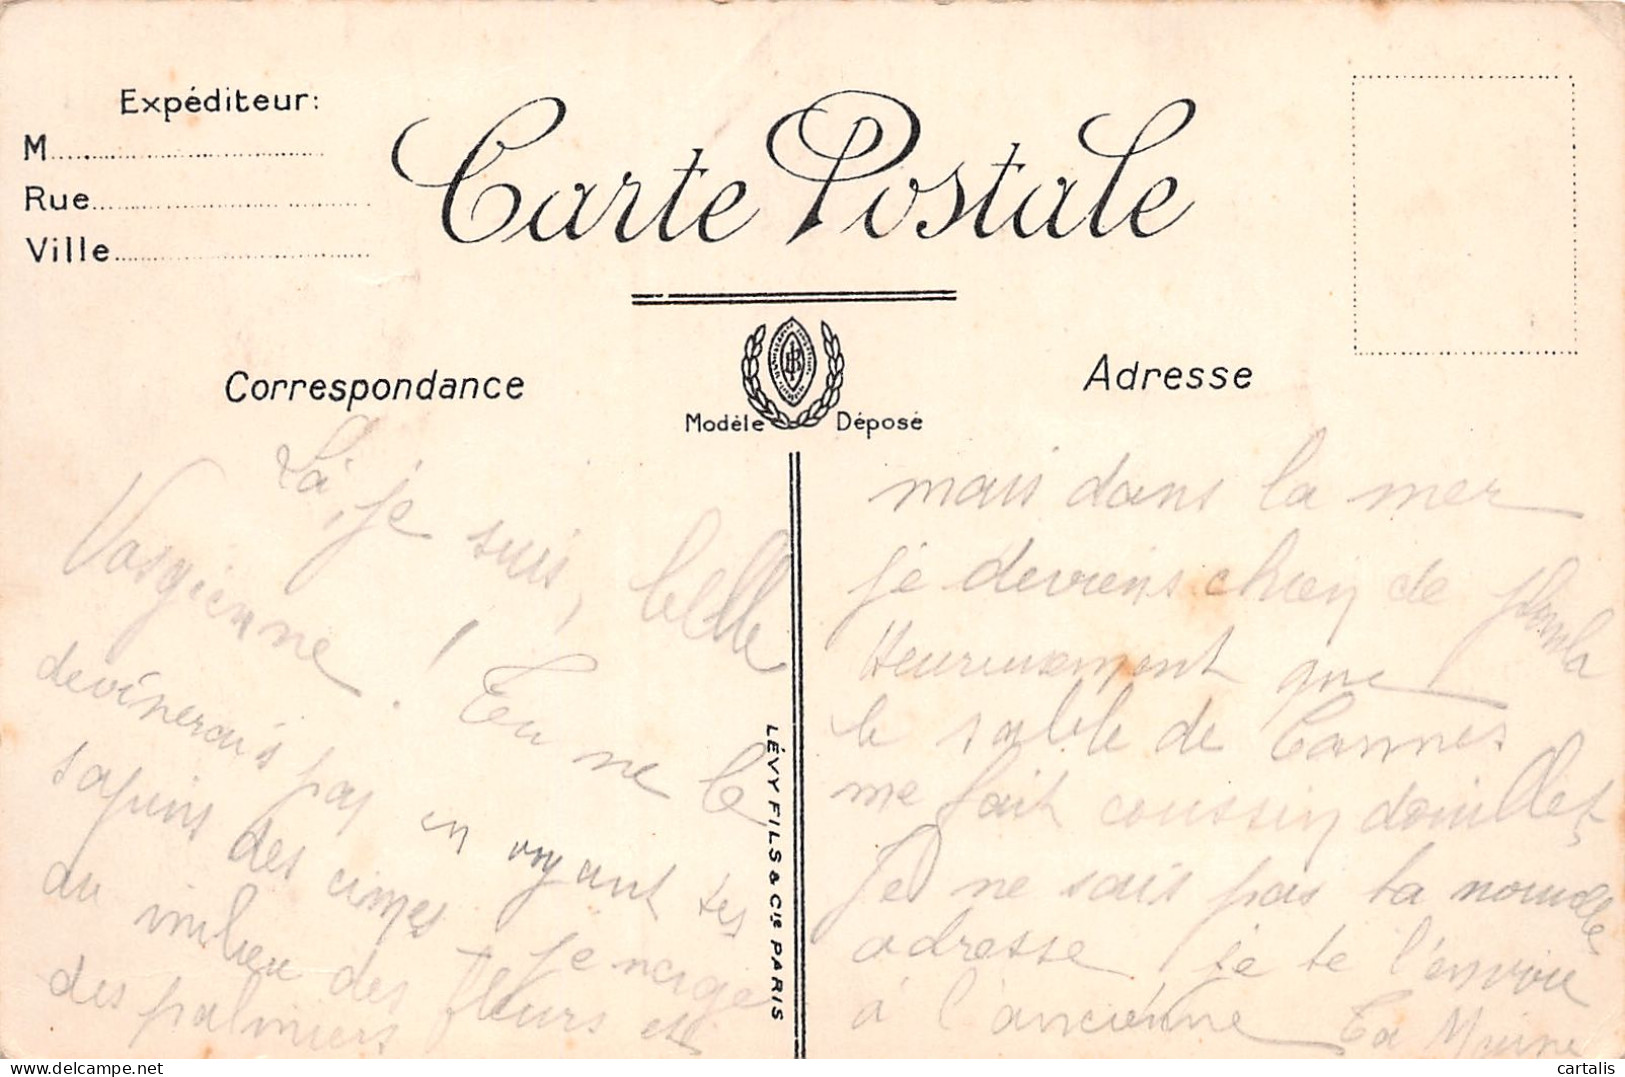 Expéditeur:
M
Rue
Ville
Carte Postale
Correspondance
Modèle Déposé
Adresse
Là, je suis, belle
Vosgienne ! Tu ne le
devinerais pas en voyant tes
sapins des cimes je nage
au milieu des fleurs et
des palmiers
mais dans la mer
je deviens chien de
Heureusement que
le sable de Cannes
me fait coussin douillet,
Je ne sais pas ta nouvelle
adresse je te l'envoie
à l'ancienne Ta
LÉVY FILS & Cie PARIS
cartalis